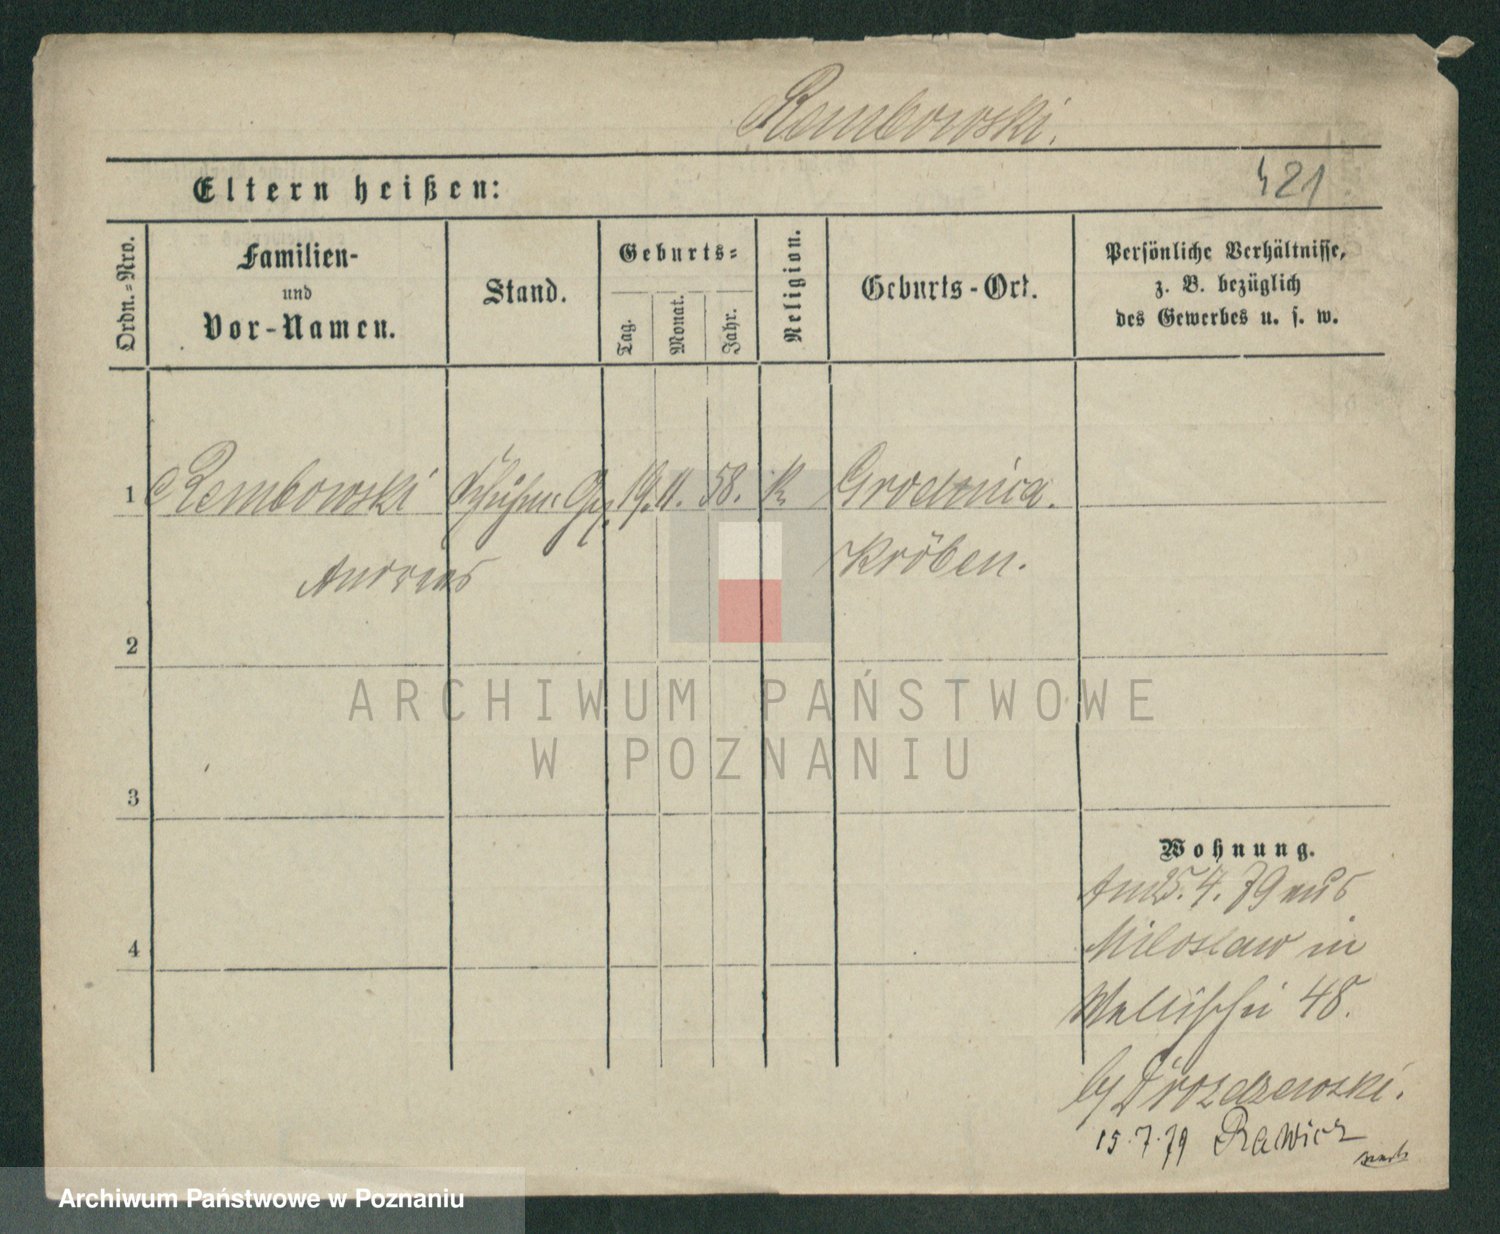 Rembowski.
Eltern heißen:
421
Ordn.=Nro.
Familien-
und
Vor-Namen.
Stand.
Geburts=
Tag.
Monat.
Jahr.
Religion.
Geburts-Ort.
Persönliche Verhältnisse,
z. B. bezüglich
des Gewerbes u. s. w.
1 Rembowski 19. 11. 58. K Grodnica.
Andreas Kröben.
2
3
4
ARCHIWUM PAŃSTWOWE
W POZNANIU
Wohnung.
Am 25. 4. 79 aus
Miloslaw in
Wallischei 48.
by Drozdzewski.
15. 7. 79 Rawicz
Archiwum Państwowe w Poznaniu